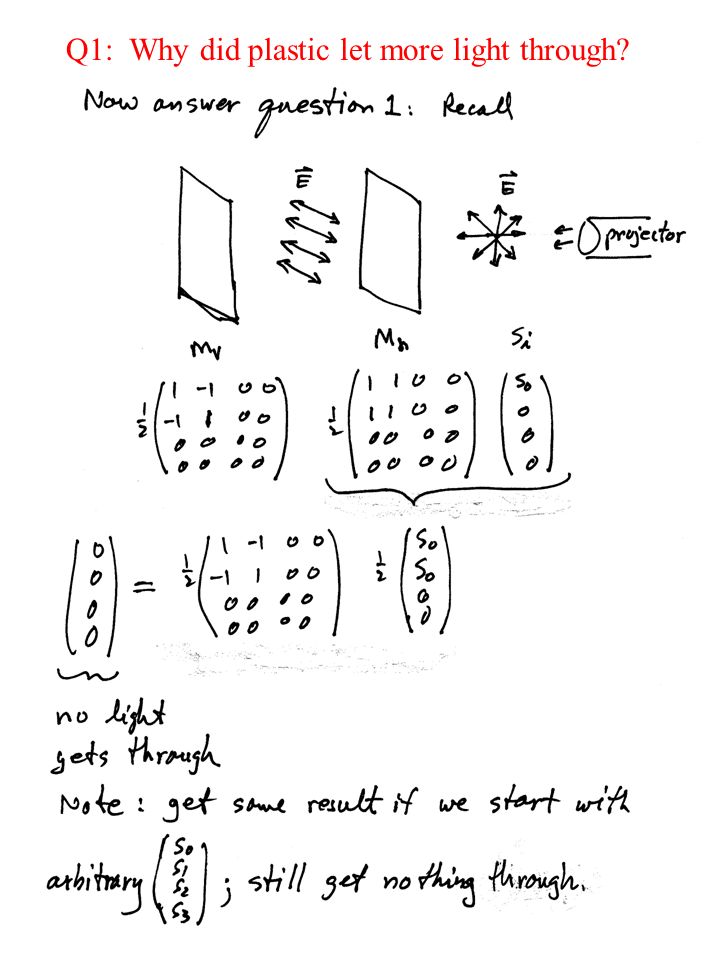 Q1: Why did plastic let more light through?
Now answer question 1: Recall
E⃗ E⃗
projector
Mv Mh Si
½ (1 -1 0 0) ½ (1 1 0 0) (S0)
(-1 1 0 0) (1 1 0 0) (0)
(0 0 0 0) (0 0 0 0) (0)
(0 0 0 0) (0 0 0 0) (0)
(0) = ½ (1 -1 0 0) ½ (S0)
(0) (-1 1 0 0) (S0)
(0) (0 0 0 0) (0)
(0) (0 0 0 0) (0)
no light
gets through
Note: get same result if we start with
arbitrary (S0 S1 S2 S3); still get nothing through.